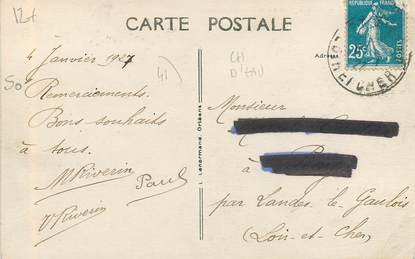 12+
CARTE POSTALE
REPUBLIQUE FRANÇAISE
25c
POSTES
ET CHER
4 Janvier 1927
41
CH
D'EAU
Adr
50
Remerciements.
Bons souhaits
à tous.
M Riverin
Paul
V Riverin
I. Lenormand, Orléans
Monsieur
à
par Landes-le-Gaulois
(Loir-et-Cher)